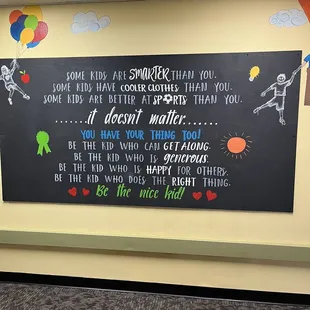 SOME KIDS ARE SMARTER THAN YOU.
SOME KIDS HAVE COOLER CLOTHES THAN YOU.
SOME KIDS ARE BETTER AT SPORTS THAN YOU.
.......it doesn't matter.......
YOU HAVE YOUR THING TOO!
BE THE KID WHO CAN GET ALONG.
BE THE KID WHO IS generous.
BE THE KID WHO IS HAPPY FOR OTHERS.
BE THE KID WHO DOES THE RIGHT THING.
Be the nice kid!